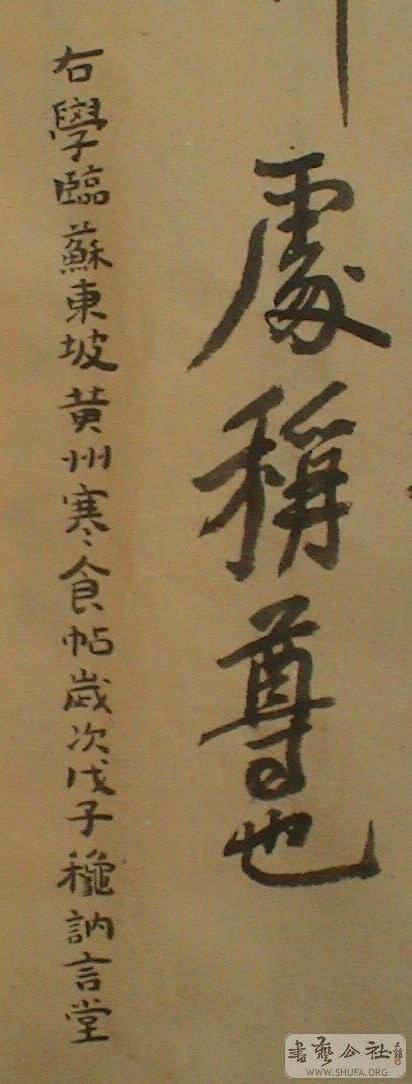 處稱尊也
右學臨蘇東坡黃州寒食帖歲次戊子龝訥言堂
書藝公社
WWW.SHUFA.ORG